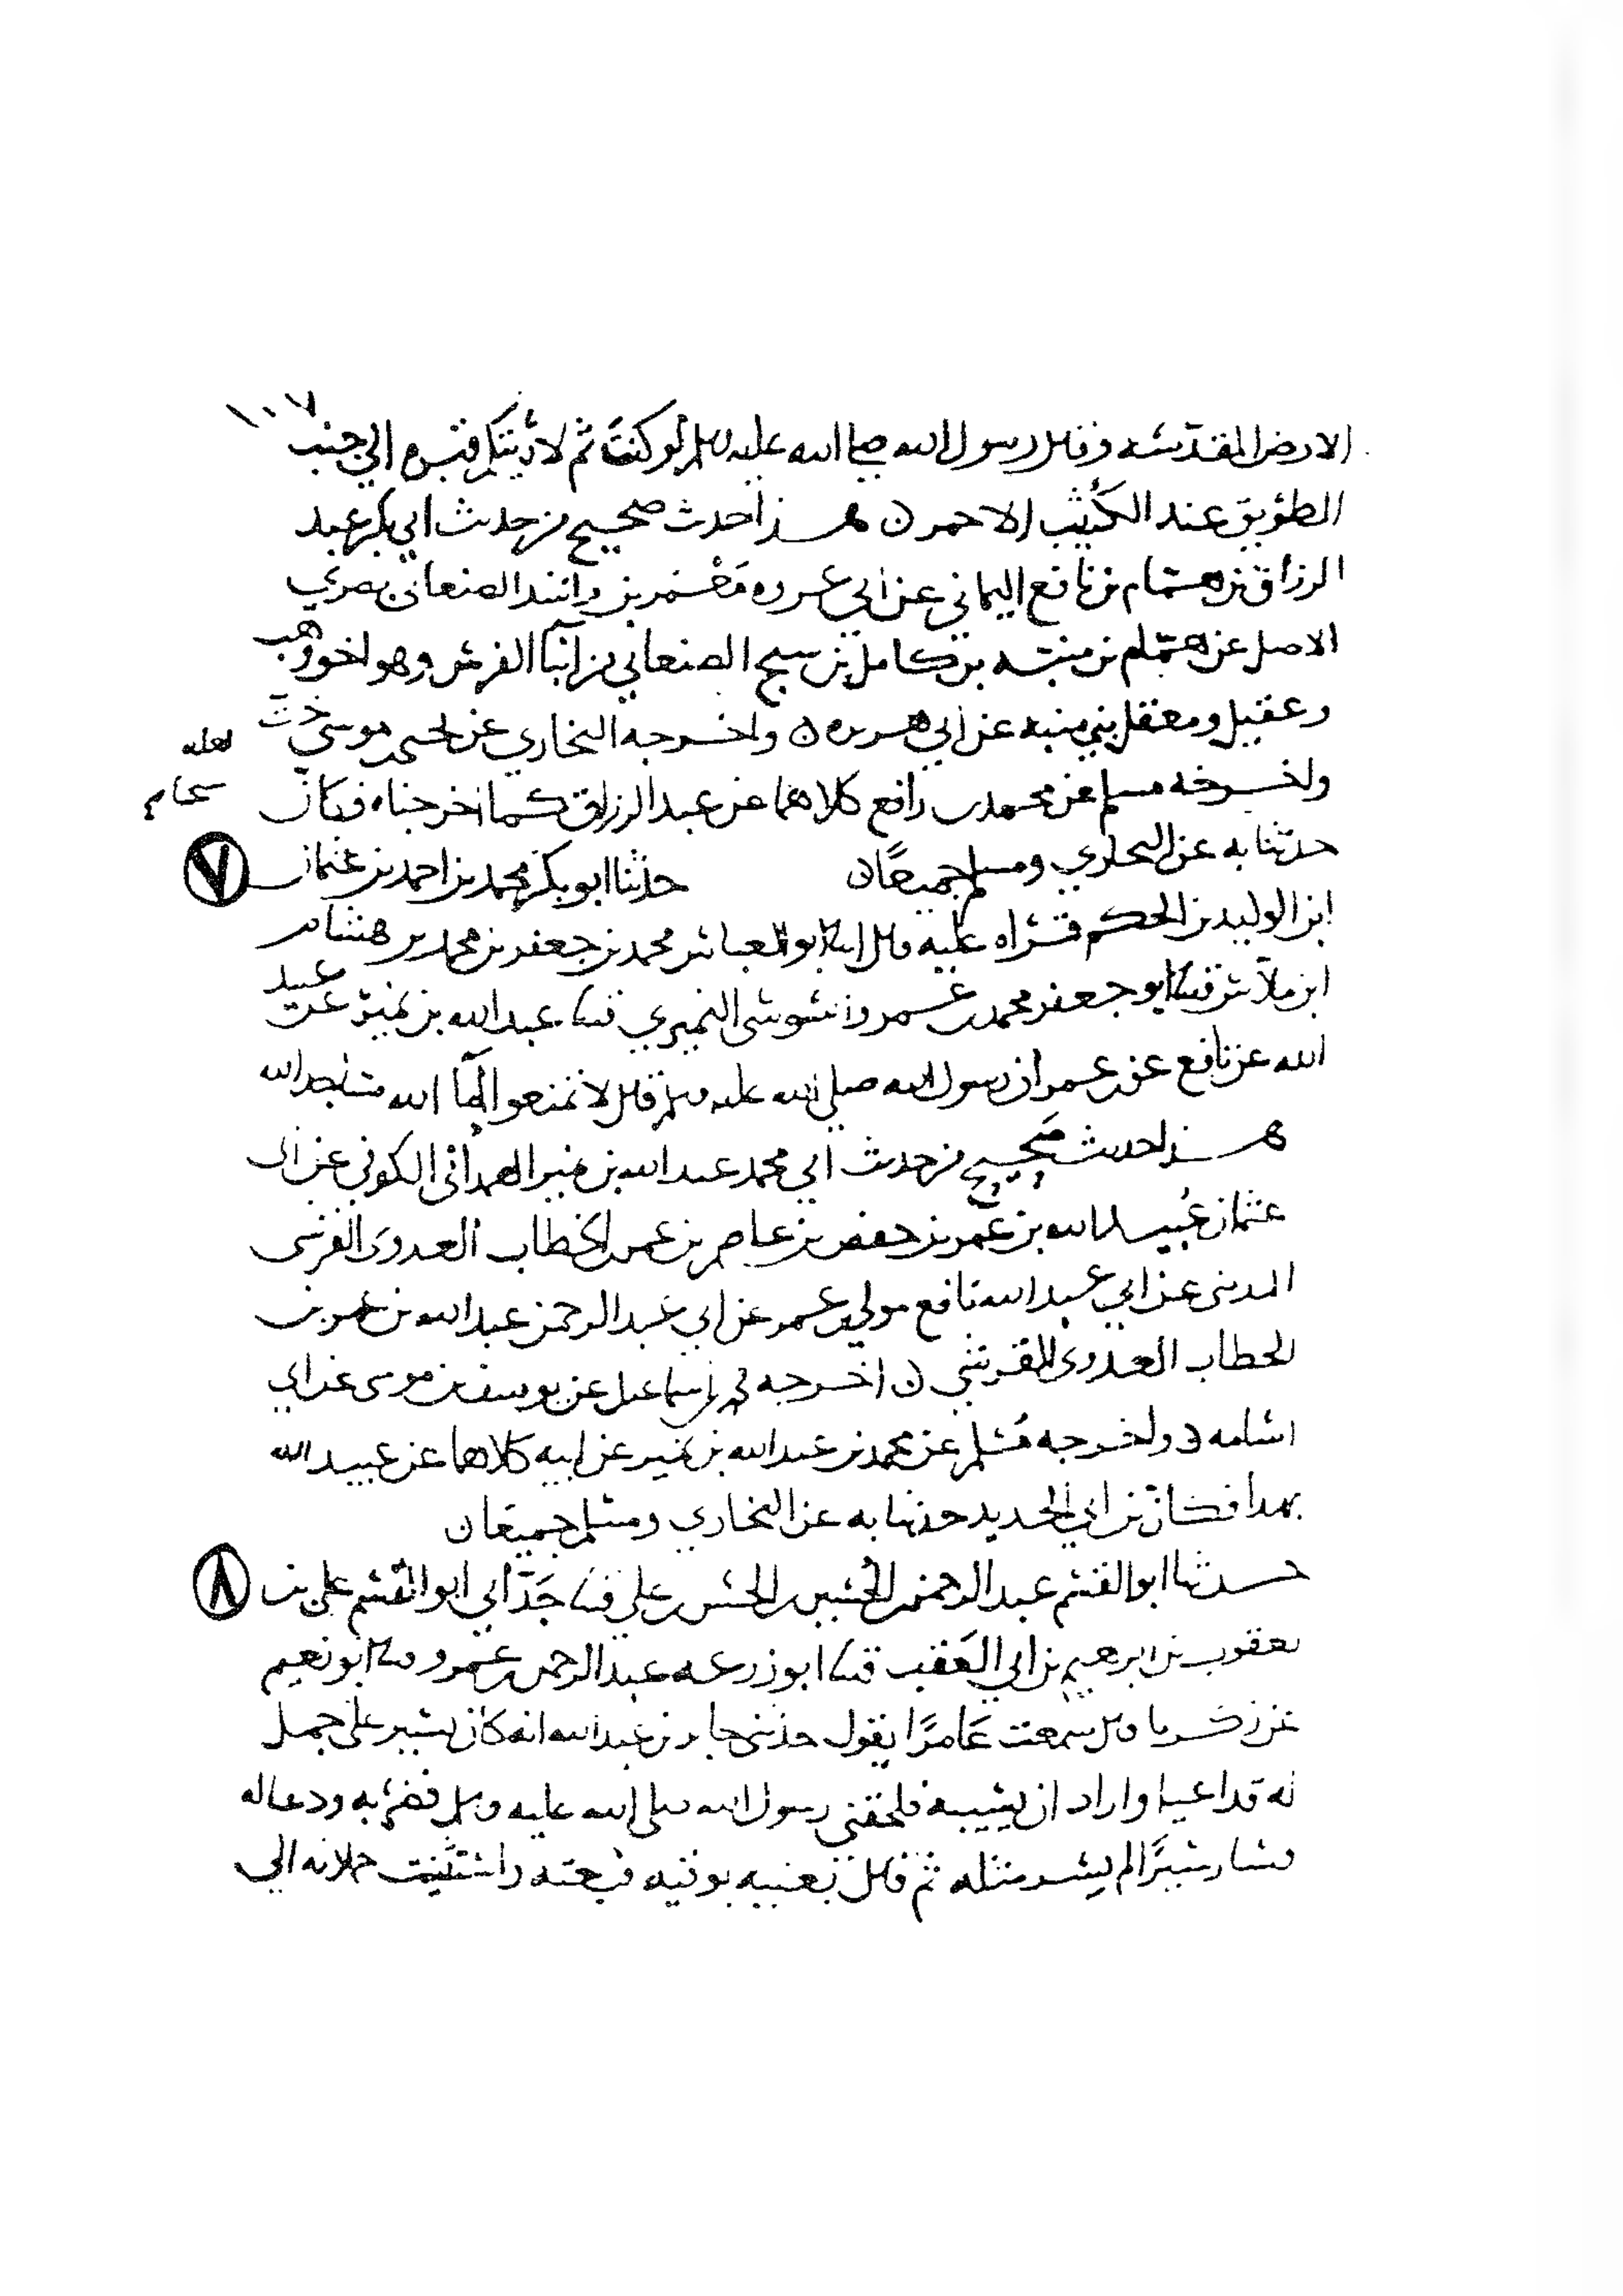 ١٠٧
الارض المقدسة وقال رسول الله صلى الله عليه وسلم لو كنت ثم لاريتكم قبره الى جنب
الطريق عند الكثيب الاحمر ن هذا حديث صحيح من حديث ابي بكر عبد
الرزاق بن همام بن نافع اليماني عن ابي عروه معمر بن راشد الصنعاني بصري
الاصل عن همام بن منبه بن كامل بن سيج الصنعاني من ابنا الفرس وهو اخو وهب
وعقيل ومعقل بني منبه عن ابي هريره ن واخرجه البخاري عن يحيى موسى خت
لعله
واخرجه مسلم عن محمد بن رافع كلاهما عن عبد الرزاق كما اخرجناه فكان
حدثنا به عن البخاري ومسلم جميعا ن حدثنا ابو بكر محمد بن احمد بن عثمان
٧
ابن الوليد بن الحكم قراه عليه قال ابنا ابو العباس محمد بن جعفر بن محمد بن هشام
ابن ملاس قثنا ابو جعفر محمد بن عمرو السوسي النميري قثنا عبد الله بن نمير عن عبيد
الله عن نافع عن بن عمر ان رسول الله صلى الله عليه وسلم قال لا تمنعوا اما الله مساجد الله
هذا حديث صحيح من حديث ابي محمد عبد الله بن نمير الهمداني الكوفي عن ابي
عثمان عبيد الله بن عمر بن حفص بن عاصم بن عمر الخطاب العدوي القرشي
المدني عن ابي عبد الله نافع مولى بن عمر عن ابي عبد الرحمن عبد الله بن عمر بن
الخطاب العدوي القرشي ن اخرجه محمد بن اسماعيل عن يوسف بن موسى عن ابي
اسامه ن واخرجه مسلم عن محمد بن عبد الله بن نمير عن ابيه كلاهما عن عبيد الله
بهذا فكان بن ابي الحديد حدثنا به عن البخاري ومسلم جميعا ن
حدثنا ابو القسم عبد الرحمن بن الحسين بن الحسن بن علي قثنا جد ابي ابو القسم علي بن
٨
يعقوب بن ابرهيم بن ابي العقب قثنا ابو زرعه عبد الرحمن بن عمرو قثنا ابو نعيم
عن زكريا قال سمعت عامرا يقول حدثني جابر بن عبد الله انه كان يسير على جمل
له قد اعيا واراد ان يسيبه فلحقني رسول الله صلى الله عليه وسلم فضربه ودعا له
فسار سيرا لم يسر مثله ثم قال بعنيه بوقيه فبعته واستثنيت حملانه الى